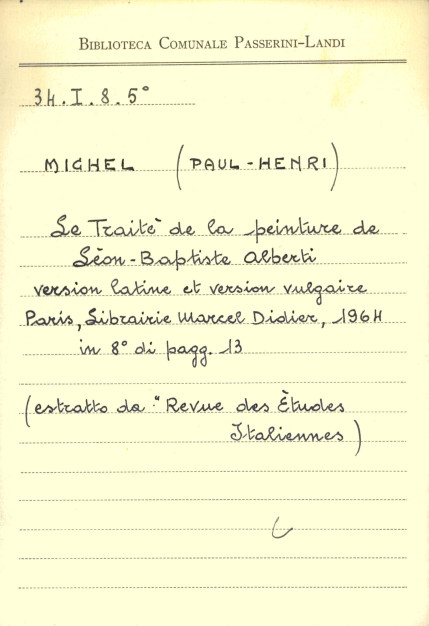 BIBLIOTECA COMUNALE PASSERINI-LANDI
34.I.8.5°
MICHEL (PAUL-HENRI)
Le Traitè de la peinture de
Léon-Baptiste Alberti
version latine et version vulgaire
Paris, Librairie Marcel Didier, 1964
in 8° di pagg. 13
(estratto da "Revue des Ètudes
Italiennes)